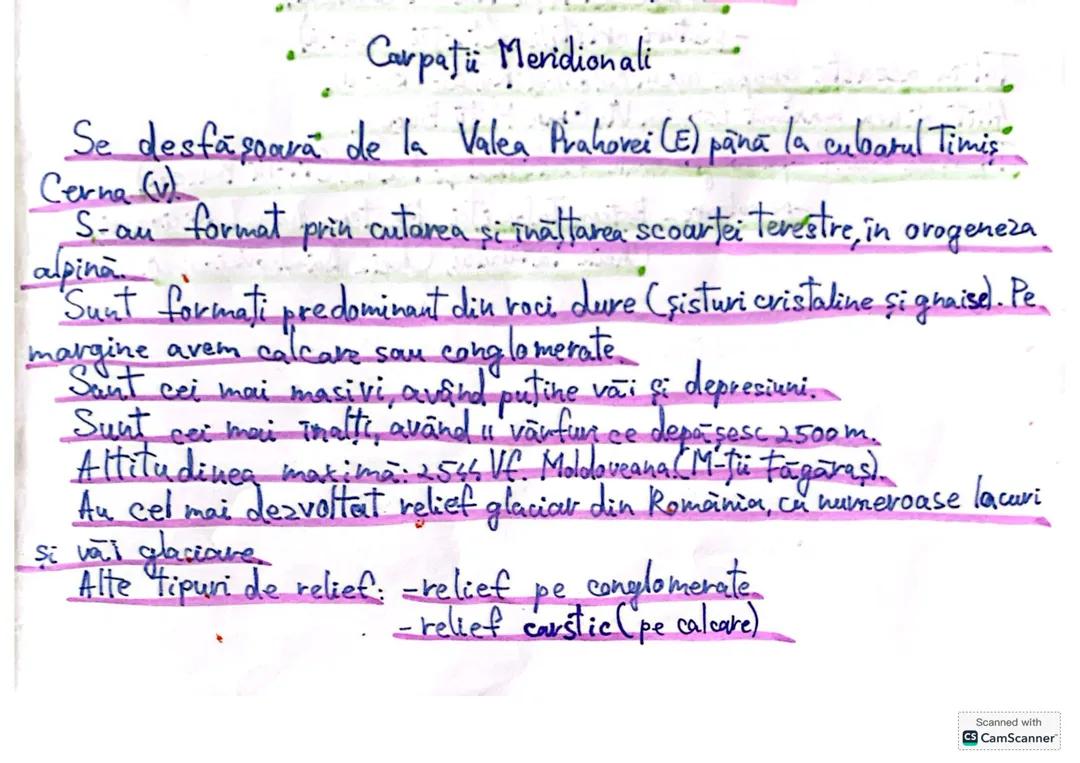 Carpații Meridionali
Se desfășoară de la Valea Prahovei (E) până la culoarul Timiș
Cerna (V).
S-au format prin cutarea și înălțarea scoarței terestre, în orogeneza
alpină.
Sunt formați predominant din roci dure (șisturi cristaline și gnaise). Pe
margine avem calcare sau conglomerate.
Sunt cei mai masivi, având puține văi și depresiuni.
Sunt cei mai înalți, având 11 vârfuri ce depășesc 2500 m.
Altitudinea maximă: 2544 Vf. Moldoveanu (M-ții Făgăraș).
Au cel mai dezvoltat relief glaciar din România, cu numeroase lacuri
și văi glaciare.
Alte tipuri de relief: -relief pe conglomerate
-relief carstic (pe calcare)
Scanned with
CS CamScanner